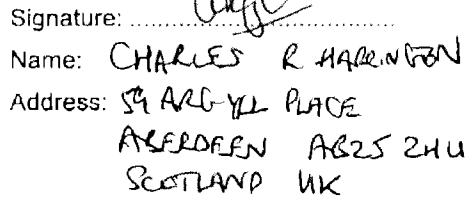 Signature:
Name: CHARLES R HARRINGTON
Address: 59 ARGYLL PLACE
ABERDEEN AB25 2HU
SCOTLAND UK